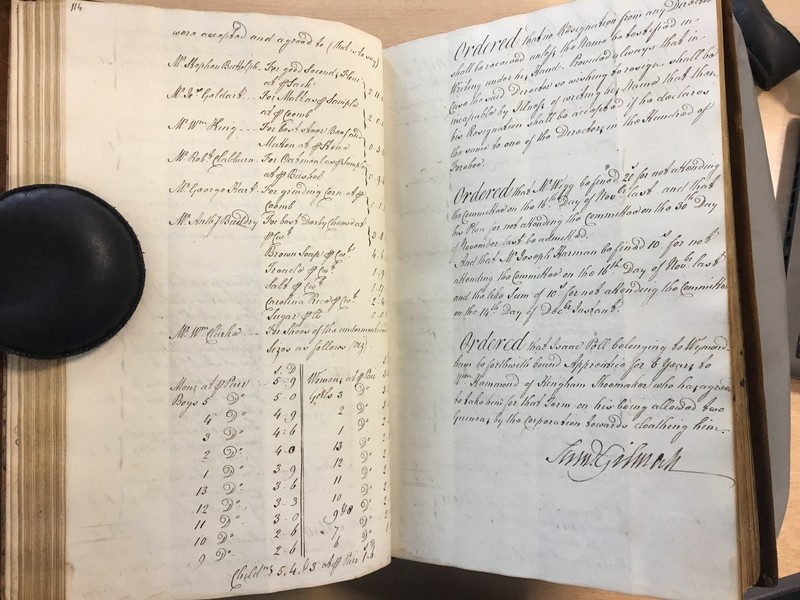 114
were accepted and agreed to (that is to say)
Mr Stephen Buttolph For good Seconds Flour
at ⅌ Sack
Mr Jos Goddart For Malt as ⅌ Sample
at ⅌ Coomb
Mr Wm For best stoor Beef and
Mutton at ⅌ Stone
Mr Robt Clabburn For Oatmeal as ⅌ Sample
at ⅌ Bushel
Mr George Hart For grinding Corn at ⅌
Coomb
Mr For best Derby Cheese at
⅌ Cwt
Brown Soap ⅌ Cwt
Treacle ⅌ Cwt
Salt ⅌ Cwt
Carolina Rice ⅌ Cwt
Sugar ⅌ lb
Mr Wm Clarke For Shoes of the
Sizes as follows (viz)
S. D
Mens at ⅌ Pair 5 - 9 Womens at ⅌ Pair
Boys 5 Do 5 - 0 Girls 3 Do
4 Do 4 - 9 2 Do
3 Do 4 - 6 1 Do
2 Do 4 - 0 13 Do
1 Do 3 - 9 12 Do
13 Do 3 - 6 11 Do
12 Do 3 - 3 10 Do
11 Do 3 - 0 9 & 8 Do
10 Do 2 - 6 7 Do
9 Do 2 - 6 6 Do
Childns 5. 4. & 3 at ⅌ Pair 1 - 8
Ordered that no Resignation from any Director
shall be received unless the Same be testified in
Writing under his Hand. Provided always that in
Case the said Director so wishing to resign shall be
incapable by Illness of writing his Name that then
his Resignation shall be accepted if he declares
the same to one of the Directors in the Hundred of
Forehoe.
Ordered that Mr Wigg be fined 20s for not attending
the Committee on the 16th Day of Novr last and that
his Plea for not attending the Committee on the 30th Day
of November last be admitted.
And that Mr Joseph Harman be fined 10s for not
attending the Committee on the 16th Day of Novr last
and the like Sum of 10s for not attending the Committee
on the 14th Day of Decr Instant.
Ordered that Isaac Bell belonging to Wymond-
ham be forthwith bound Apprentice for 6 Years to
Wm Hammond of Hingham Shoemaker who has agreed
to take him for that Term on his being allowed two
Guineas by the Corporation towards cloathing him.